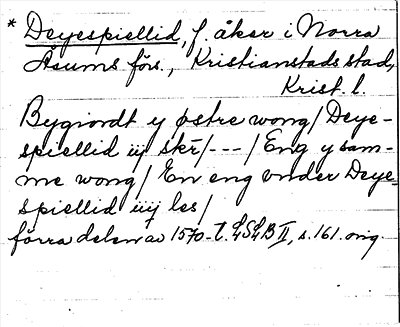 * Deyespiellid, f. åker i Norra
Åsums förs., Kristianstads stad,
Krist. l.
Bygiordt y østre wong/ Deye-
spiellid iij skr/---/ Eng y sam-
me wong/ En eng vnder Deye-
spiellid iiij les/
förra delen av 1570-t. LSLB II, s. 161. orig.